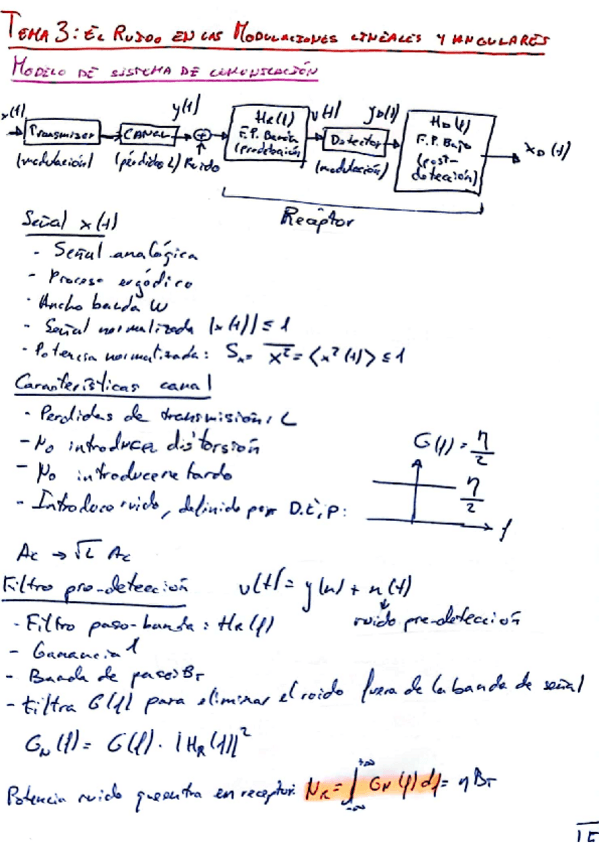 TEMA 3: EL RUIDO EN LAS MODULACIONES LINEALES Y ANGULARES
MODELO DE SISTEMA DE COMUNICACIÓN
x(t) Transmisor CANAL y(t) + HR(f) F.P. Banda (predetección) v(t) Detector yD(t) HD(f) F.P. Bajo (post-detección) xD(t)
(modulación) (pérdidas L) Ruido (modulación)
Receptor
Señal x(t)
- Señal analógica
- Proceso ergódico
- Ancho banda W
- Señal normalizada |x(t)| ≤ 1
- Potencia normalizada: Sx = x² = <x²(t)> ≤ 1
Características canal
- Perdidas de transmisión, L
- No introduce distorsión
- No introduce retardo
- Introduce ruido, definido por D.E.P:
G(f) = η/2
η/2
f
Ac → √L Ac
Filtro pre-detección v(t) = y(t) + n(t)
ruido pre-detección
- Filtro paso-banda: HR(f)
- Ganancia 1
- Banda de paso: BT
- Filtra G(f) para eliminar el ruido fuera de la banda de señal
GN(f) = G(f) · |HR(f)|²
Potencia ruido que entra en receptor: NR = ∫ +∞ -∞ GN(f) df = η BT